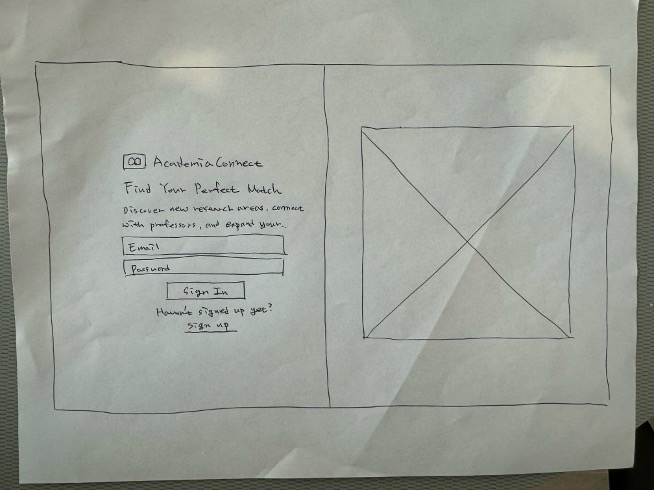 AcademiaConnect
Find Your Perfect Match
Discover new research areas, connect
with professors, and expand your..
Email
Password
Sign In
Haven't signed up yet?
Sign up